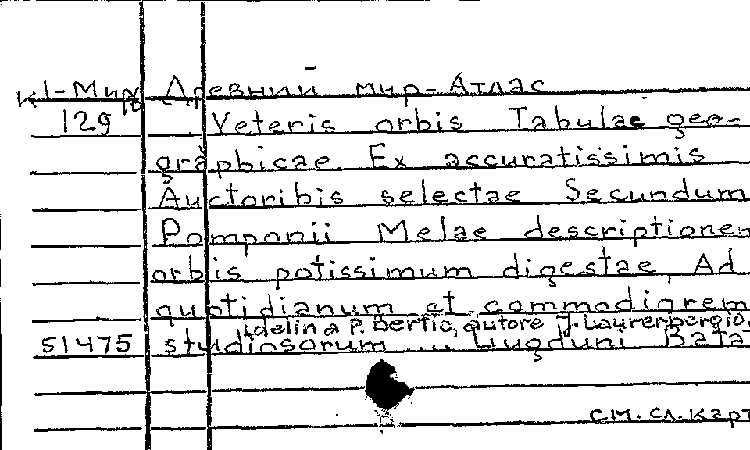 к1-Мир Древний мир-Атлас
129 Veteris orbis Tabulae geo-
graphicae. Ex accuratissimis
Auctoribis selectae Secundum
Pomponii Melae descriptionem
orbis potissimum digestae, Ad
quotidianum et commodiorem
delin a P. Bertio, autore J. Laurenbergio.
51475 studiosorum ... Lugduni Bata
см. сл. карт